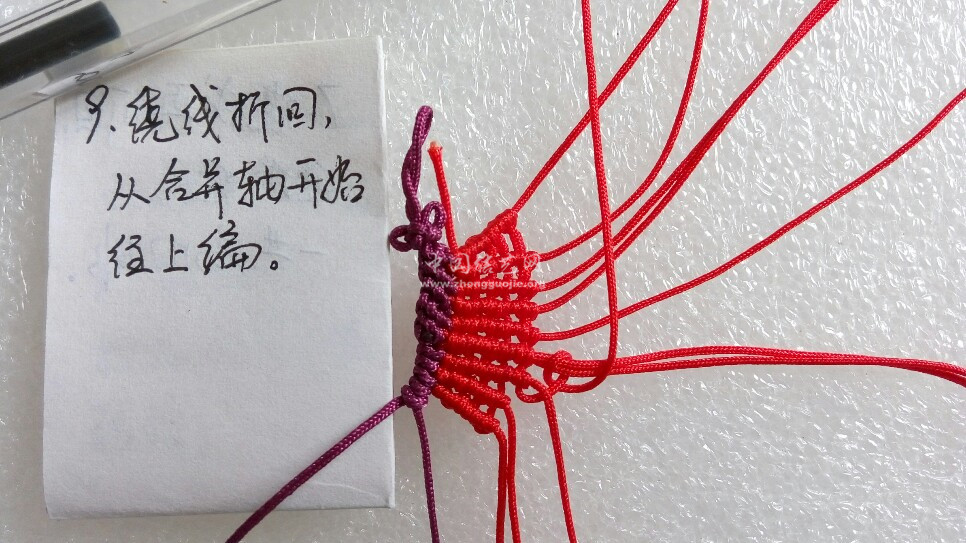 9、绕线折回，
从合并轴开始
往上编。
中国结艺网
www.zhongguojie.org